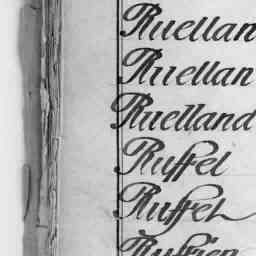 Ruellan
Ruellan
Ruelland
Ruffel
Ruffel
Ruffien